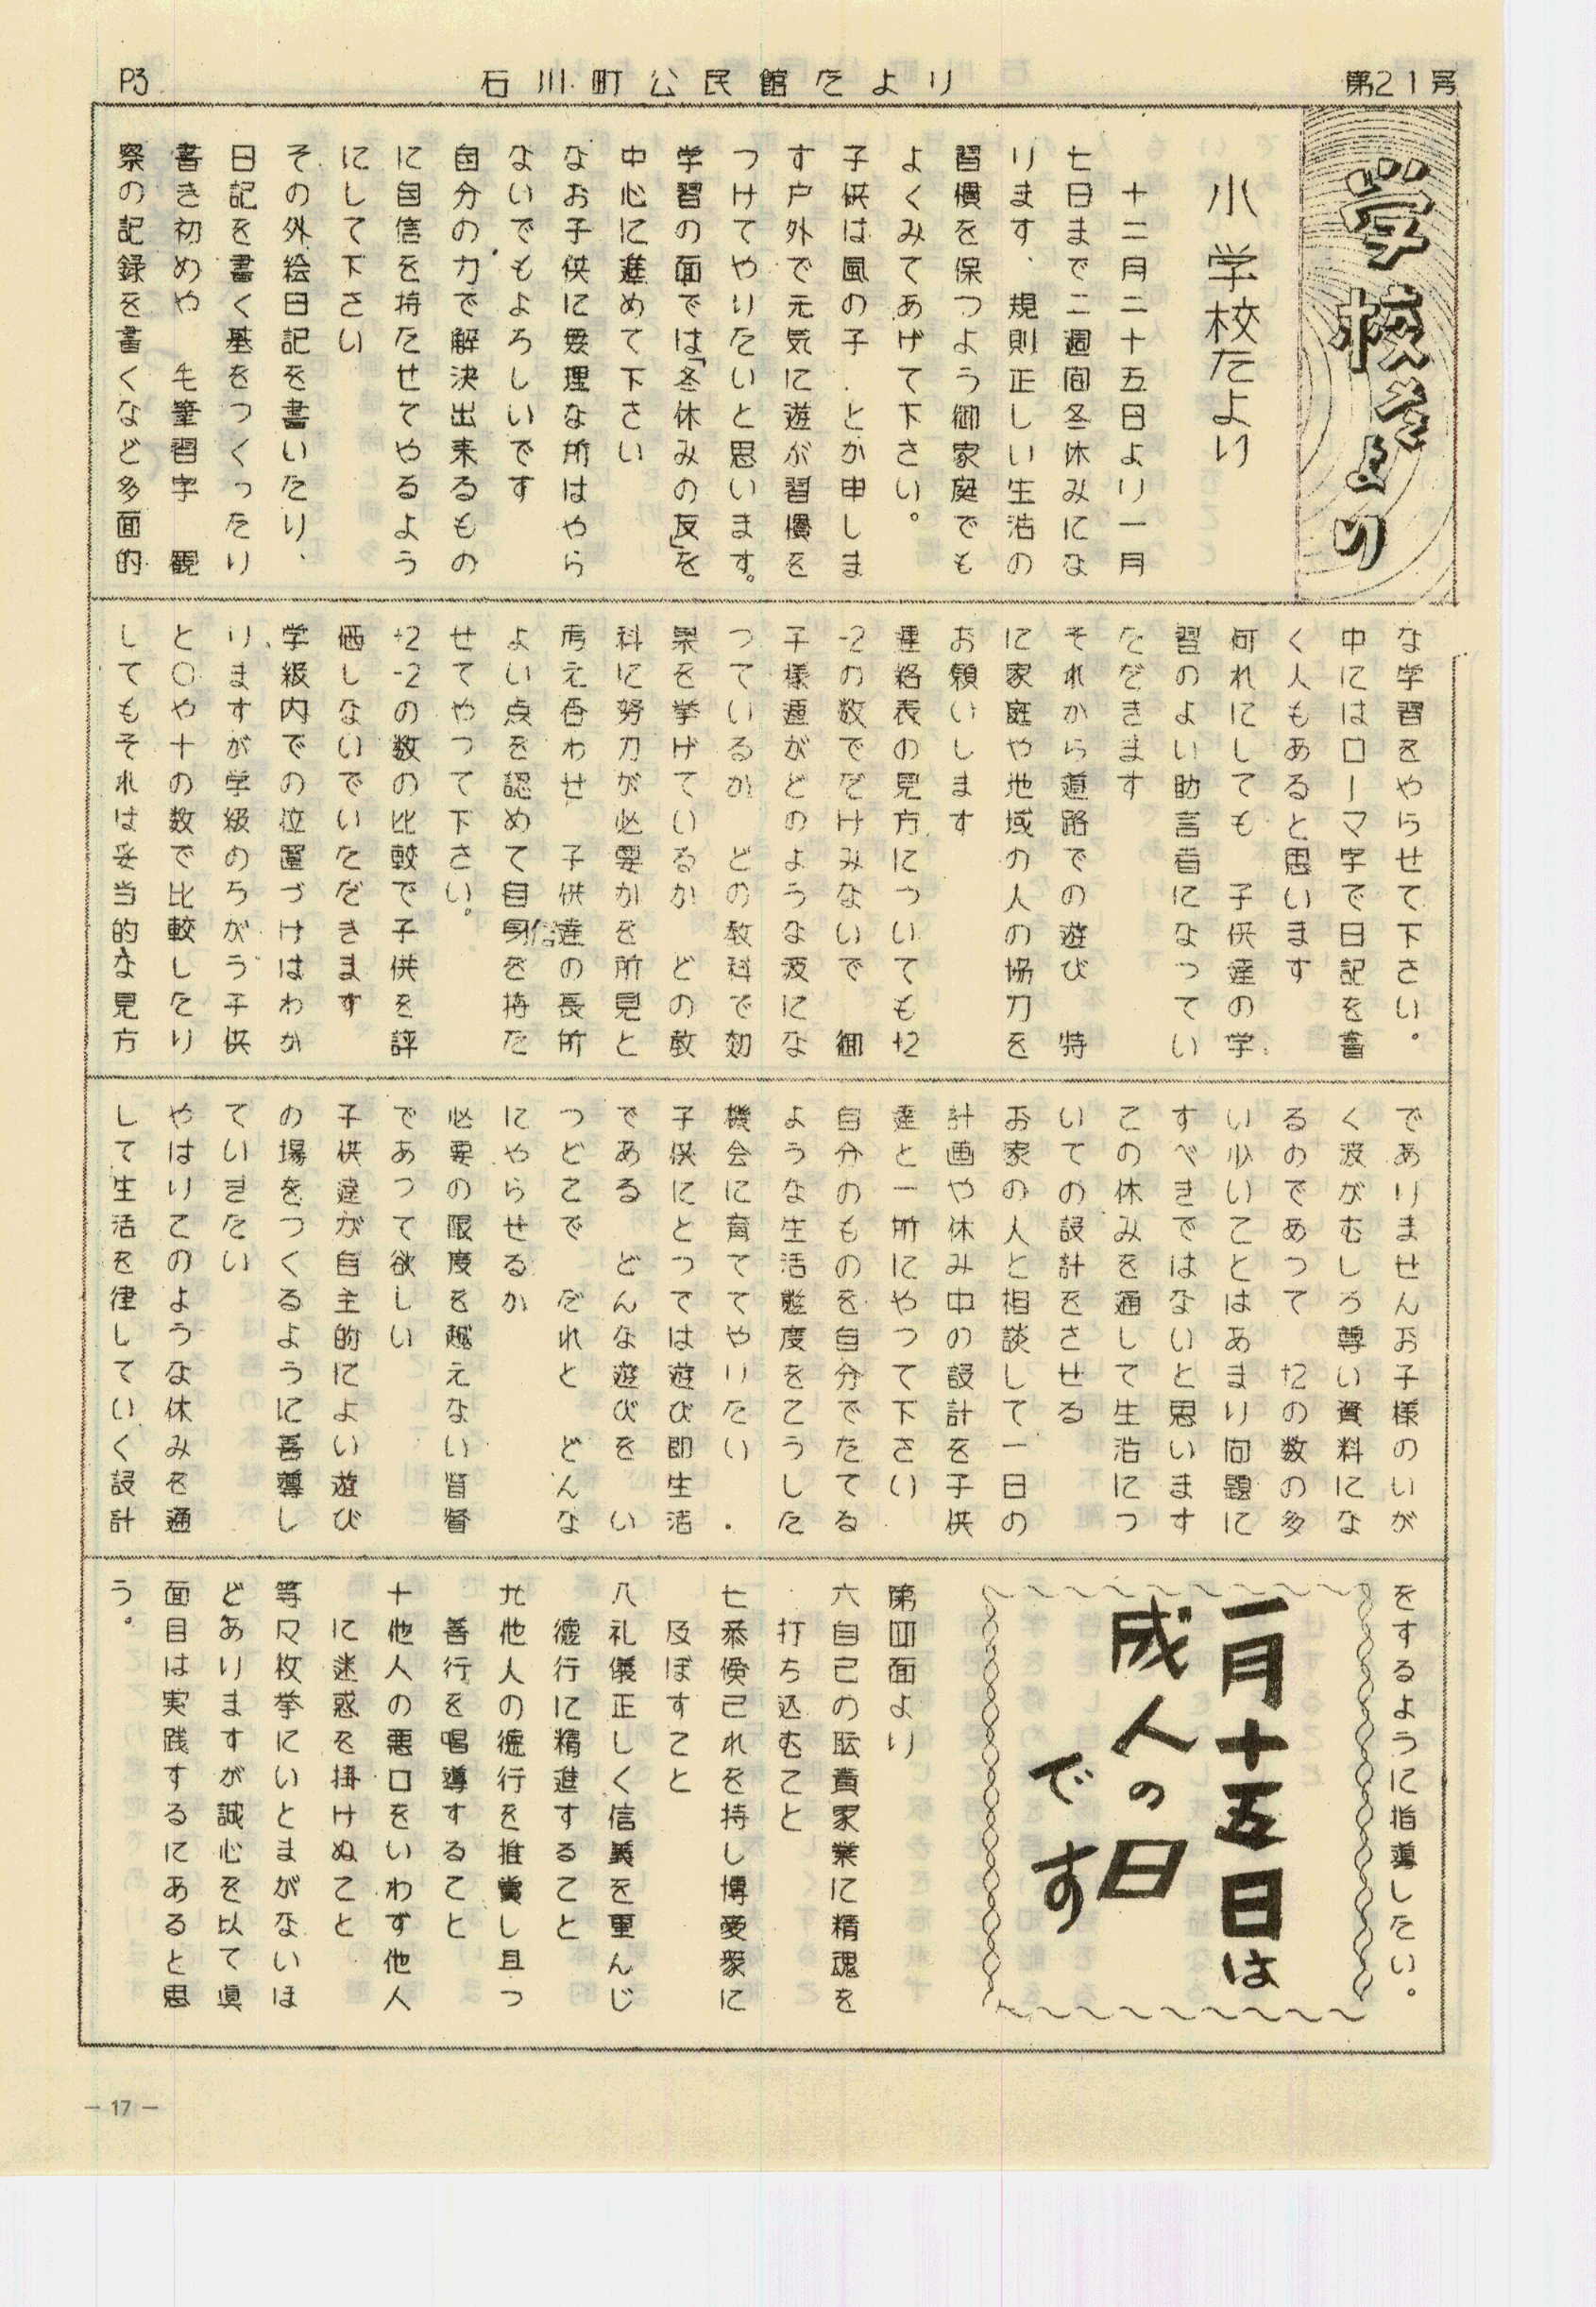 第21号
石川町公民館だより
P3
学校だより
小学校だより
十二月二十五日より一月
七日まで二週間冬休みにな
ります、規則正しい生活の
習慣を保つよう御家庭でも
よくみてあげて下さい。
子供は風の子.とか申しま
す戸外で元気に遊ぶ習慣を
つけてやりたいと思います。
学習の面では「冬休みの友」を
中心に進めて下さい
なお子供に無理な所はやら
ないでもよろしいです
自分の力で解決出来るもの
に自信を持たせてやるよう
にして下さい
その外絵日記を書いたり、
日記を書く基をつくったり
書き初めや 毛筆習字 観
察の記録を書くなど多面的
な学習をやらせて下さい。
中にはローマ字で日記を書
く人もあると思います
何れにしても 子供達の学
習のよい助言者になってい
ただきます
それから道路での遊び 特
に家庭や地域の人の協力を
お願いします
連絡表の見方についても+2
-2の数でだけみないで 御
子様達がどのような波にな
っているか どの教科で効
果を挙げているか どの教
科に努力が必要かを所見と
考え合わせ 子供達の長所
よい点を認めて自信を持た
せてやって下さい。
+2-2の数の比較で子供を評
価しないでいただきます
学級内での位置づけはわか
りますが学級のちがう子供
と〇や十の数で比較したり
してもそれは妥当的な見方
でありませんお子様のいが
く波がむしろ尊い資料にな
るのであって +2の数の多
い少いことはあまり問題に
すべきではないと思います
この休みを通して生活につ
いての設計をさせる
お家の人と相談して一日の
計画や休み中の設計を子供
達と一所にやって下さい
自分のものを自分でたてる
ような生活態度をこうした
機会に育ててやりたい.
子供にとっては遊び即生活
である どんな遊びを い
つどこで だれと どんな
にやらせるか
必要の限度を越えない督
であって欲しい
子供達が自主的によい遊び
の場をつくるように善導し
ていきたい
やはりこのような休みを通
して生活を律していく設計
をするように指導したい。
一月十五日は
成人の日
です
第四面より
六自己の職責家業に精魂を
打ち込むこと
七恭倹己れを持し博愛衆に
及ぼすこと
八礼儀正しく信義を重んじ
徳行に精進すること
九他人の徳行を推賞し且つ
善行を唱導すること
十他人の悪口をいわず他人
に迷惑を掛けぬこと
等々枚挙にいとまがないほ
どありますが誠心を以て眞
面目は実践するにあると思
う。
- 17 -